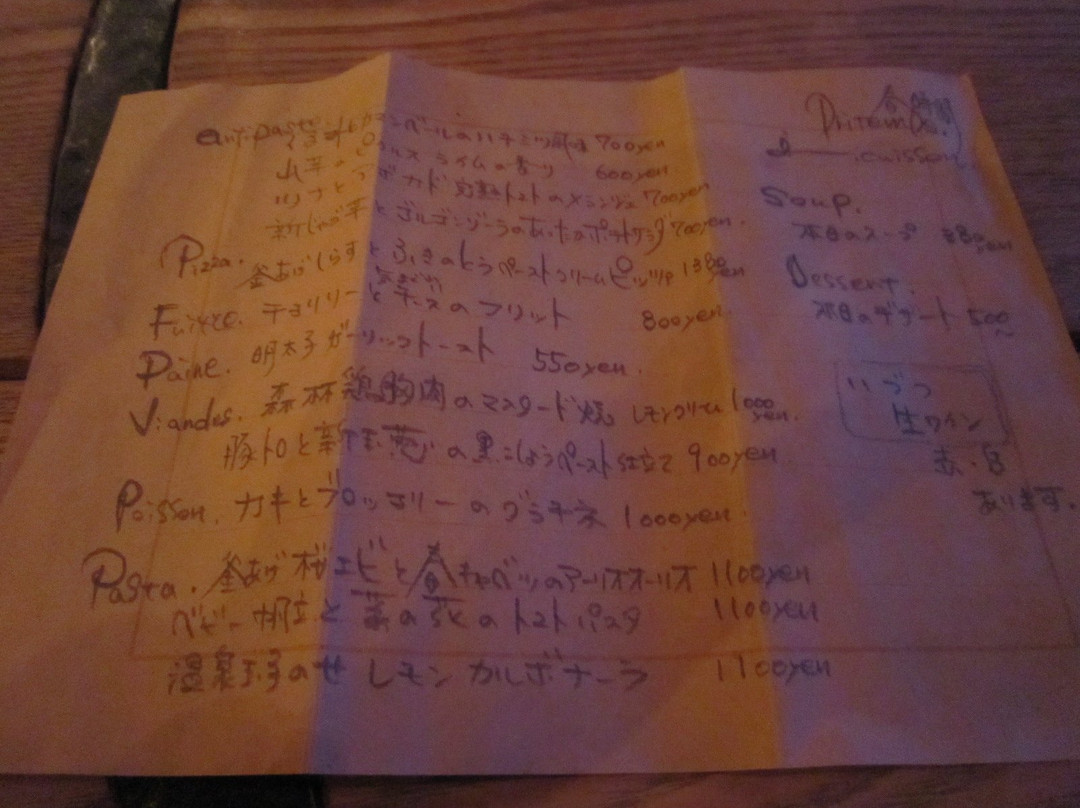 antipaste
カマンベールのハチミツ 700yen
山芋の ライムの香り 600yen
アボカド 完熟トマトの 700yen
新じゃが芋とゴルゴンゾーラのあったかポテトサラダ 700yen
Pizza. 釜あげしらすとふきのとうペーストクリームピッツァ 1380yen
チョリソーとチーズのフリット 800yen
Paine. 明太子ガーリックトースト 550yen.
Viandes. 森林鶏胸肉のマスタード焼 レモンクリーム 1000yen.
豚トロと新玉葱の黒こしょうペースト仕立て 900yen
Poisson. カキとブロッコリーのグラチネ 1000yen.
Pasta. 釜あげ桜エビと春キャベツのアーリオオーリオ 1100yen
ベビー帆立と菜の花のトマトパスタ 1100yen
温泉玉子のせ レモンカルボナーラ 1100yen
Printemps.
cuisson.
Soup.
本日のスープ
Dessert.
本日のデザート 500~
生ワイン
赤・白
あります。